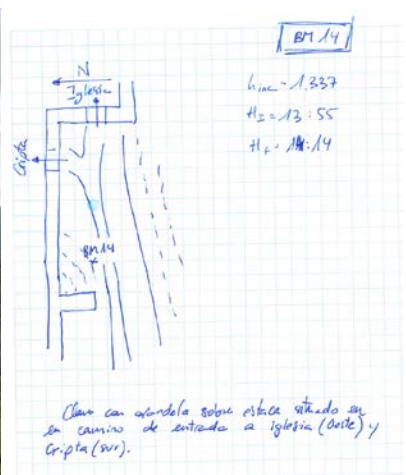 BM 14
N
Iglesia
Cripta
BM 14
hinc - 1.337
HI = 13:55
HF = 14:14
Clavo con arandela sobre estaca situado en
en camino de entrada a iglesia (oeste) y
Cripta (sur).